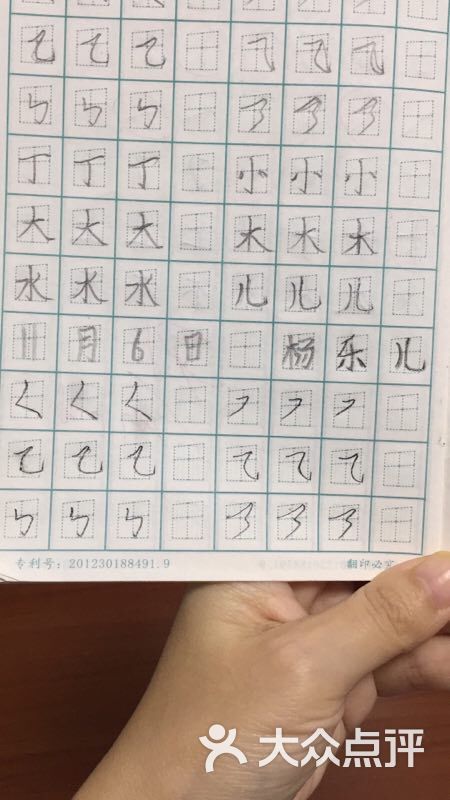 乙 乙 乙 ㄟ ㄟ ㄟ
ㄣ ㄣ ㄣ 了 了 了
丁 丁 丁 小 小 小
大 大 大 木 木 木
水 水 水 儿 儿 儿
11 月 6 日 杨 乐 儿
ㄑ ㄑ ㄑ フ フ フ
乙 乙 乙 ㄟ ㄟ ㄟ
ㄣ ㄣ ㄣ 3 3 3
专利号：201230188491.9 翻印必究
大众点评